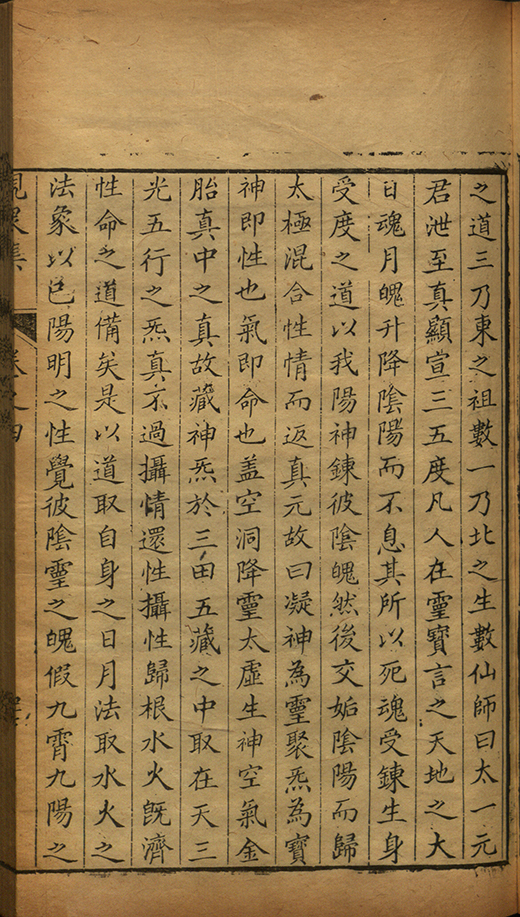 之道三乃東之祖數一乃北之生數仙師曰太一元
君泄至真顯宣三五度凡人在靈寶言之天地之大
日魂月魄升降陰陽而不息其所以死魂受鍊生身
受度之道以我陽神鍊彼陰魄然後交姤陰陽而歸
太極混合性情而返真元故曰凝神為靈聚炁為寶
神即性也氣即命也盖空洞降靈太虛生神空氣金
胎真中之真故藏神炁於三田五藏之中取在天三
光五行之炁真不過攝情還性攝性歸根水火既濟
性命之道備矣是以道取自身之日月法取水火之
法象以包陽明之性覺彼陰靈之魄假九霄九陽之
卷之四